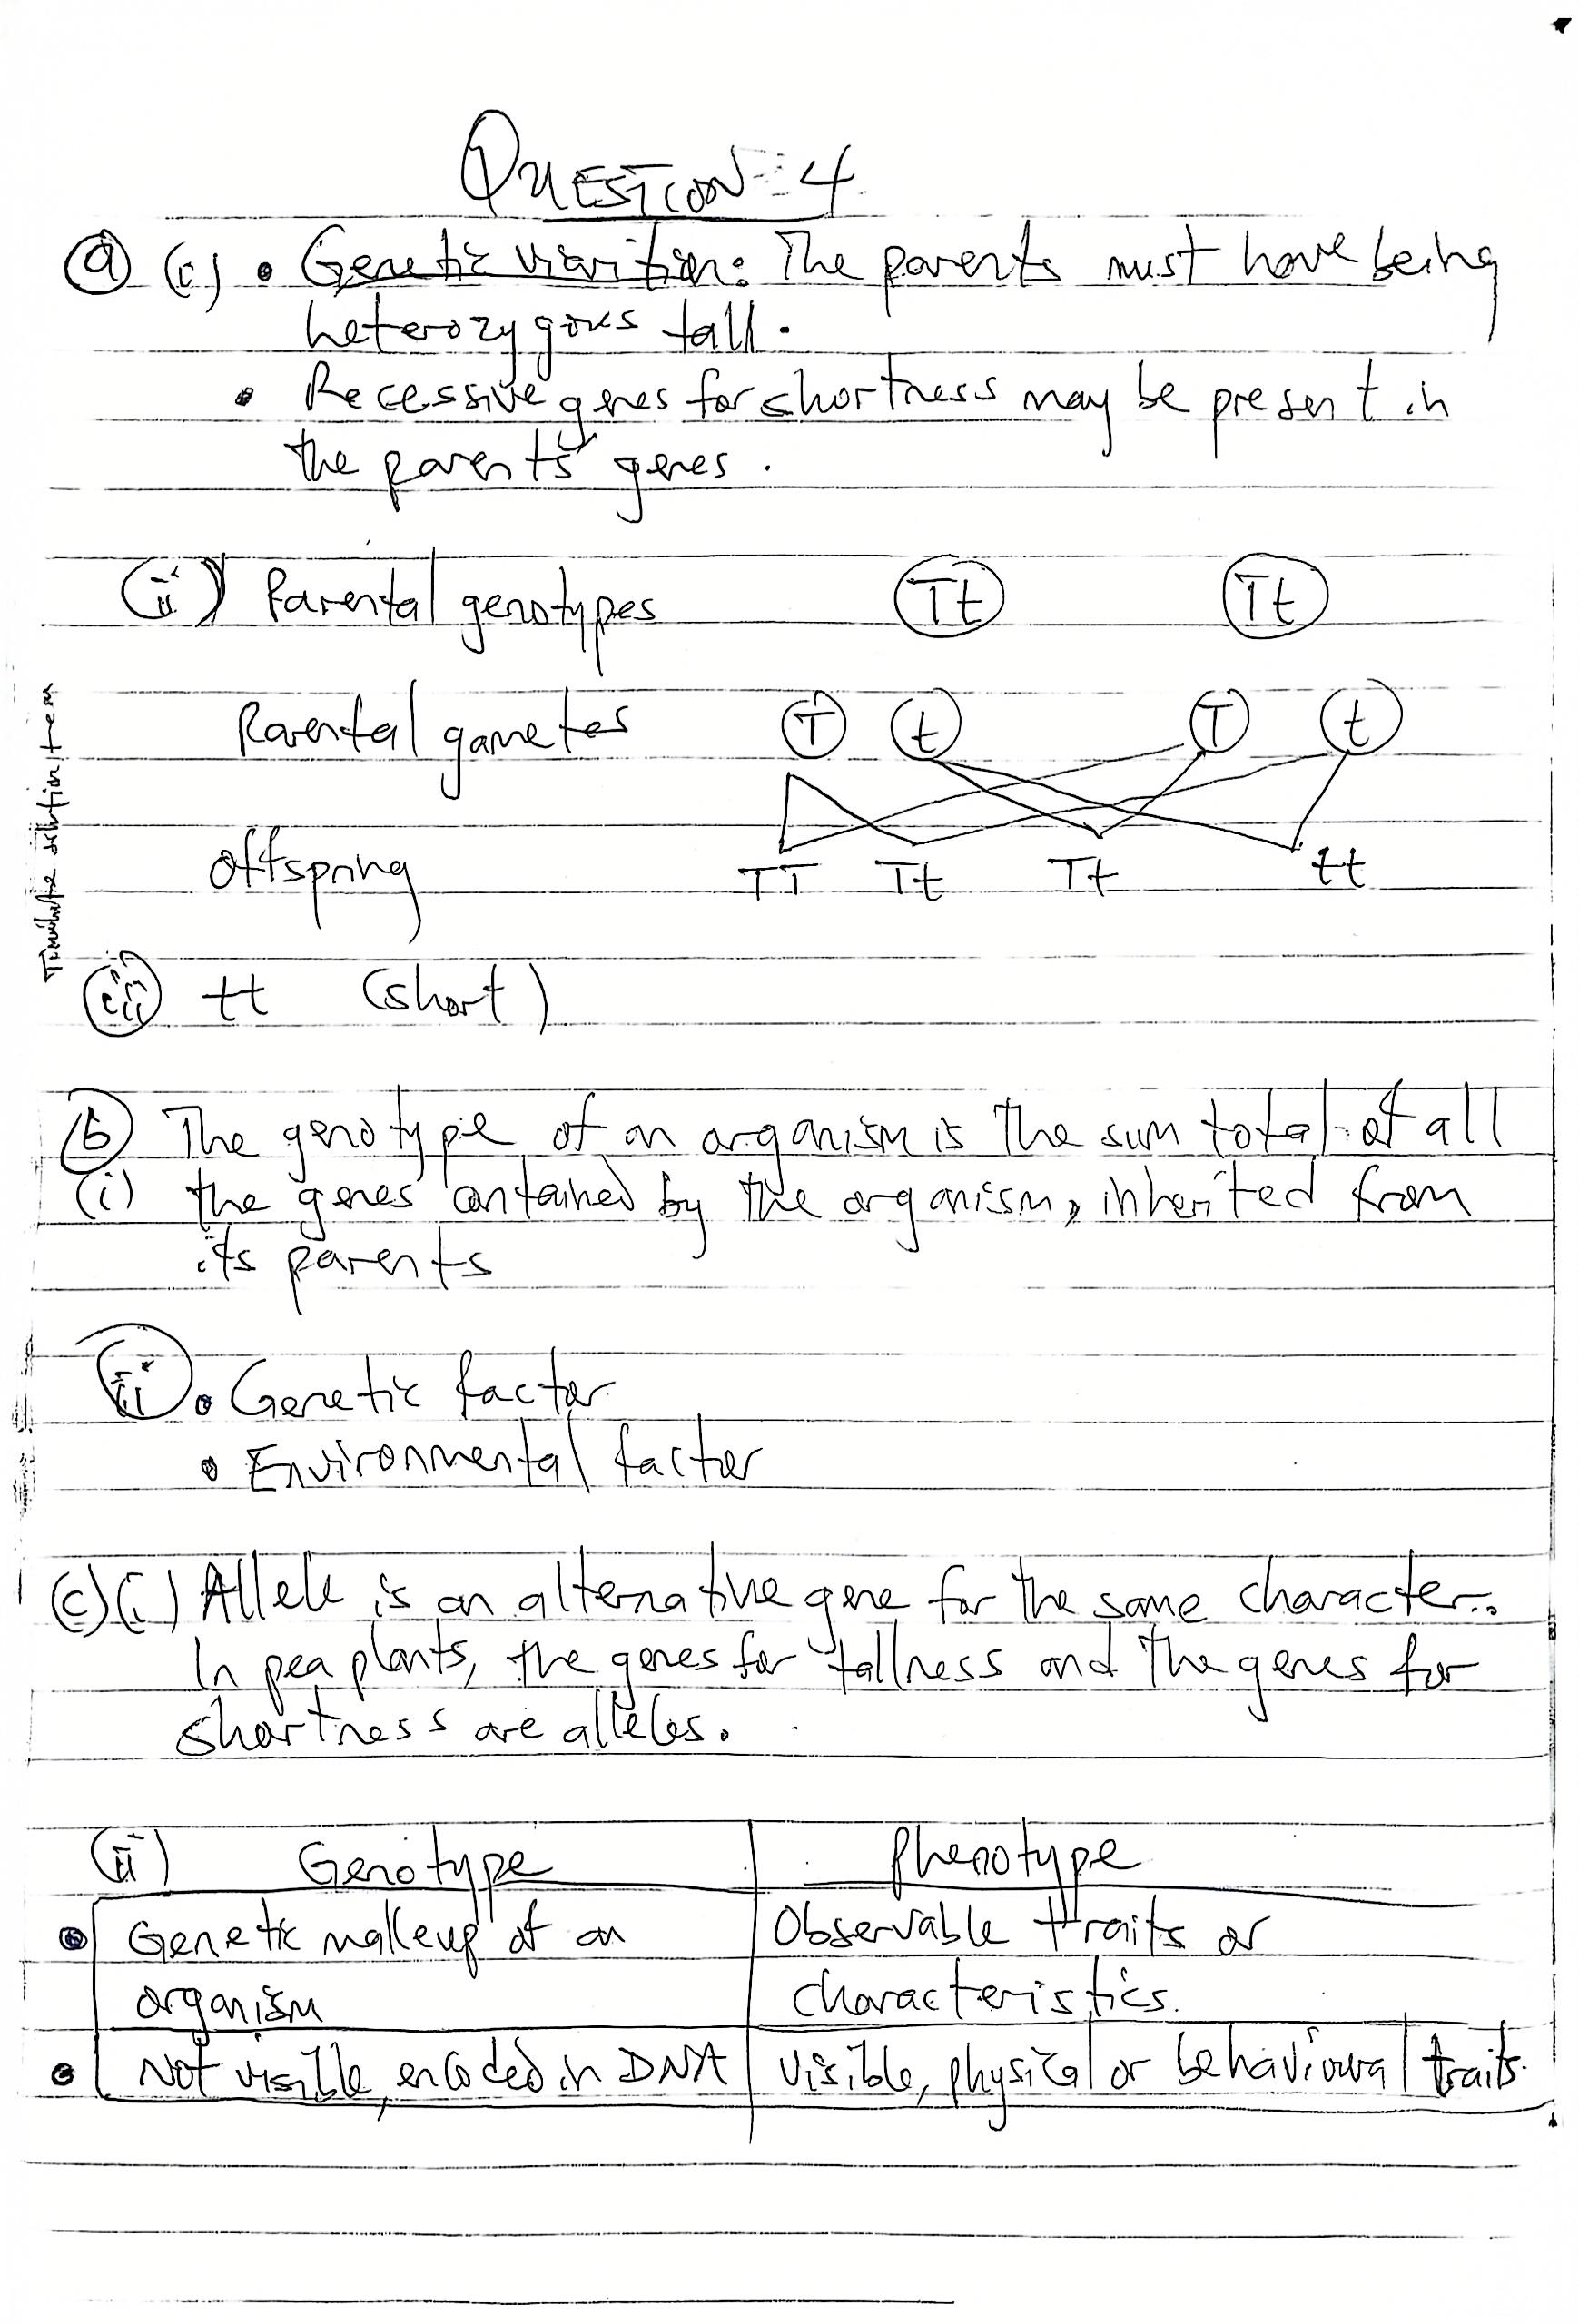 QUESTION 4
(a) (i) • Genetic viarition: The parents must have being
heterozygous tall.
• Recessive genes for shortness may be present in
the parents' genes.
(ii) Parental genotypes Tt Tt
Parental gametes T t T t
Offspring TT Tt Tt tt
(iii) tt (short)
(b) The genotype of an organism is the sum total of all
(i) the genes contained by the organism, inherited from
its parents
(ii) • Genetic factor
• Environmental factor
(c)(i) Allele is an alternative gene for the same character.
In pea plants, the genes for tallness and the genes for
shortness are alleles.
(ii) Genotype Phenotype
• Genetic makeup of an Observable traits or
organism characteristics.
• Not visible, encoded in DNA Visible, physical or behavioural traits.